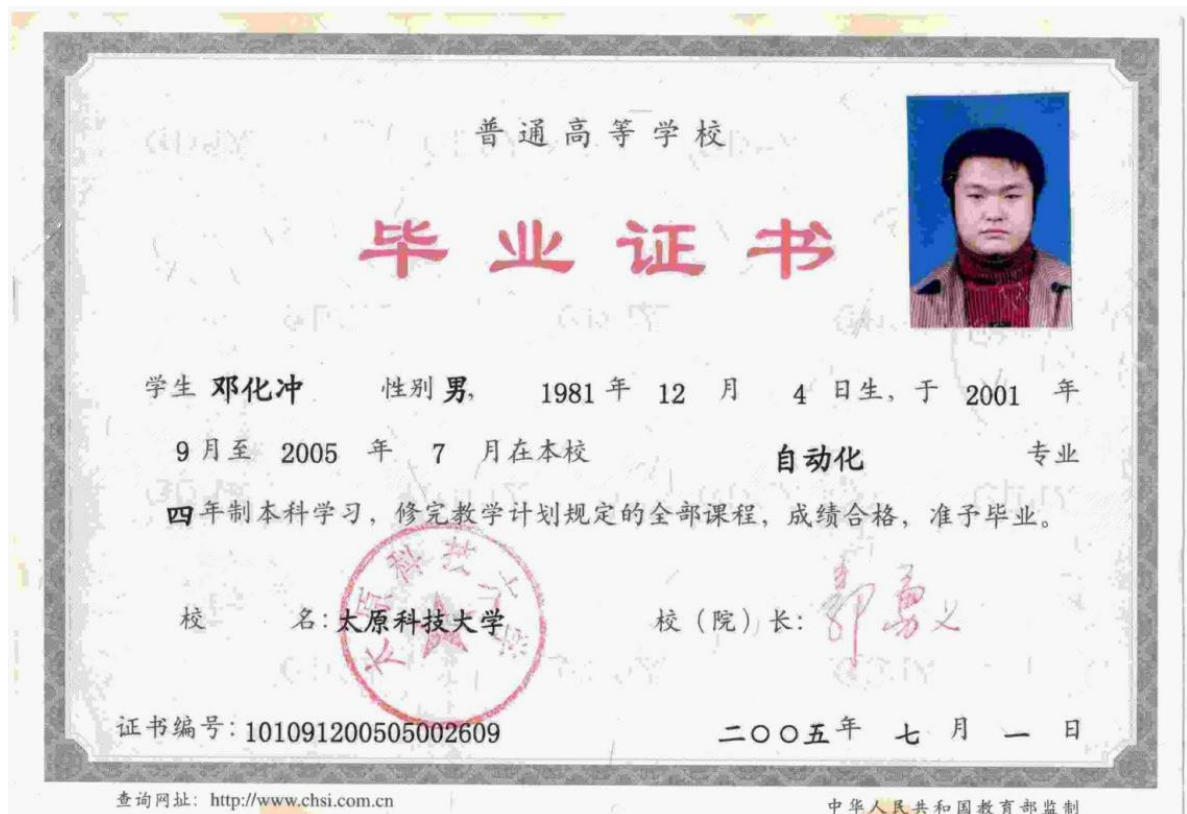 普通高等学校
毕业证书
学生 邓化冲 性别 男, 1981 年 12 月 4 日生, 于 2001 年
9 月至 2005 年 7 月在本校 自动化 专业
四年制本科学习, 修完教学计划规定的全部课程, 成绩合格, 准予毕业。
校 名: 太原科技大学 校 (院) 长: 郭勇义
太原科技大学
证书编号: 101091200505002609 二〇〇五年 七 月 一 日
查询网址: http://www.chsi.com.cn 中华人民共和国教育部监制